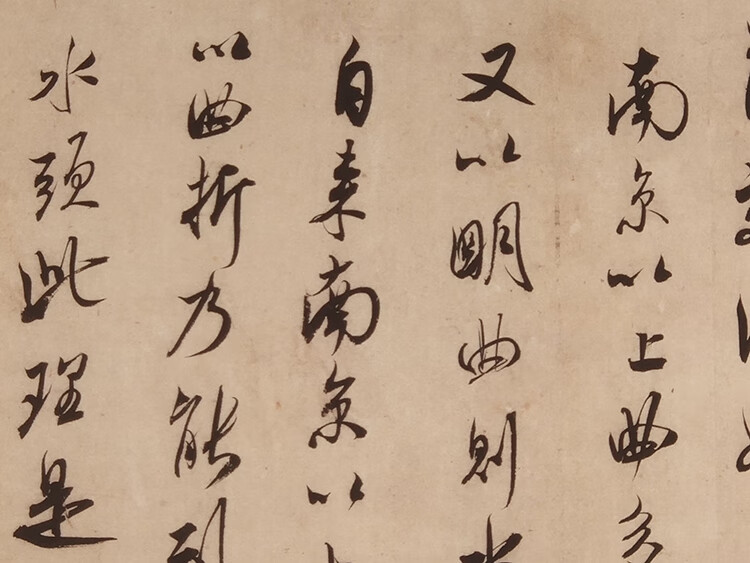 南京以上曲多
又以明曲則水
自来南京以上
以曲折乃能到
水頭此理是